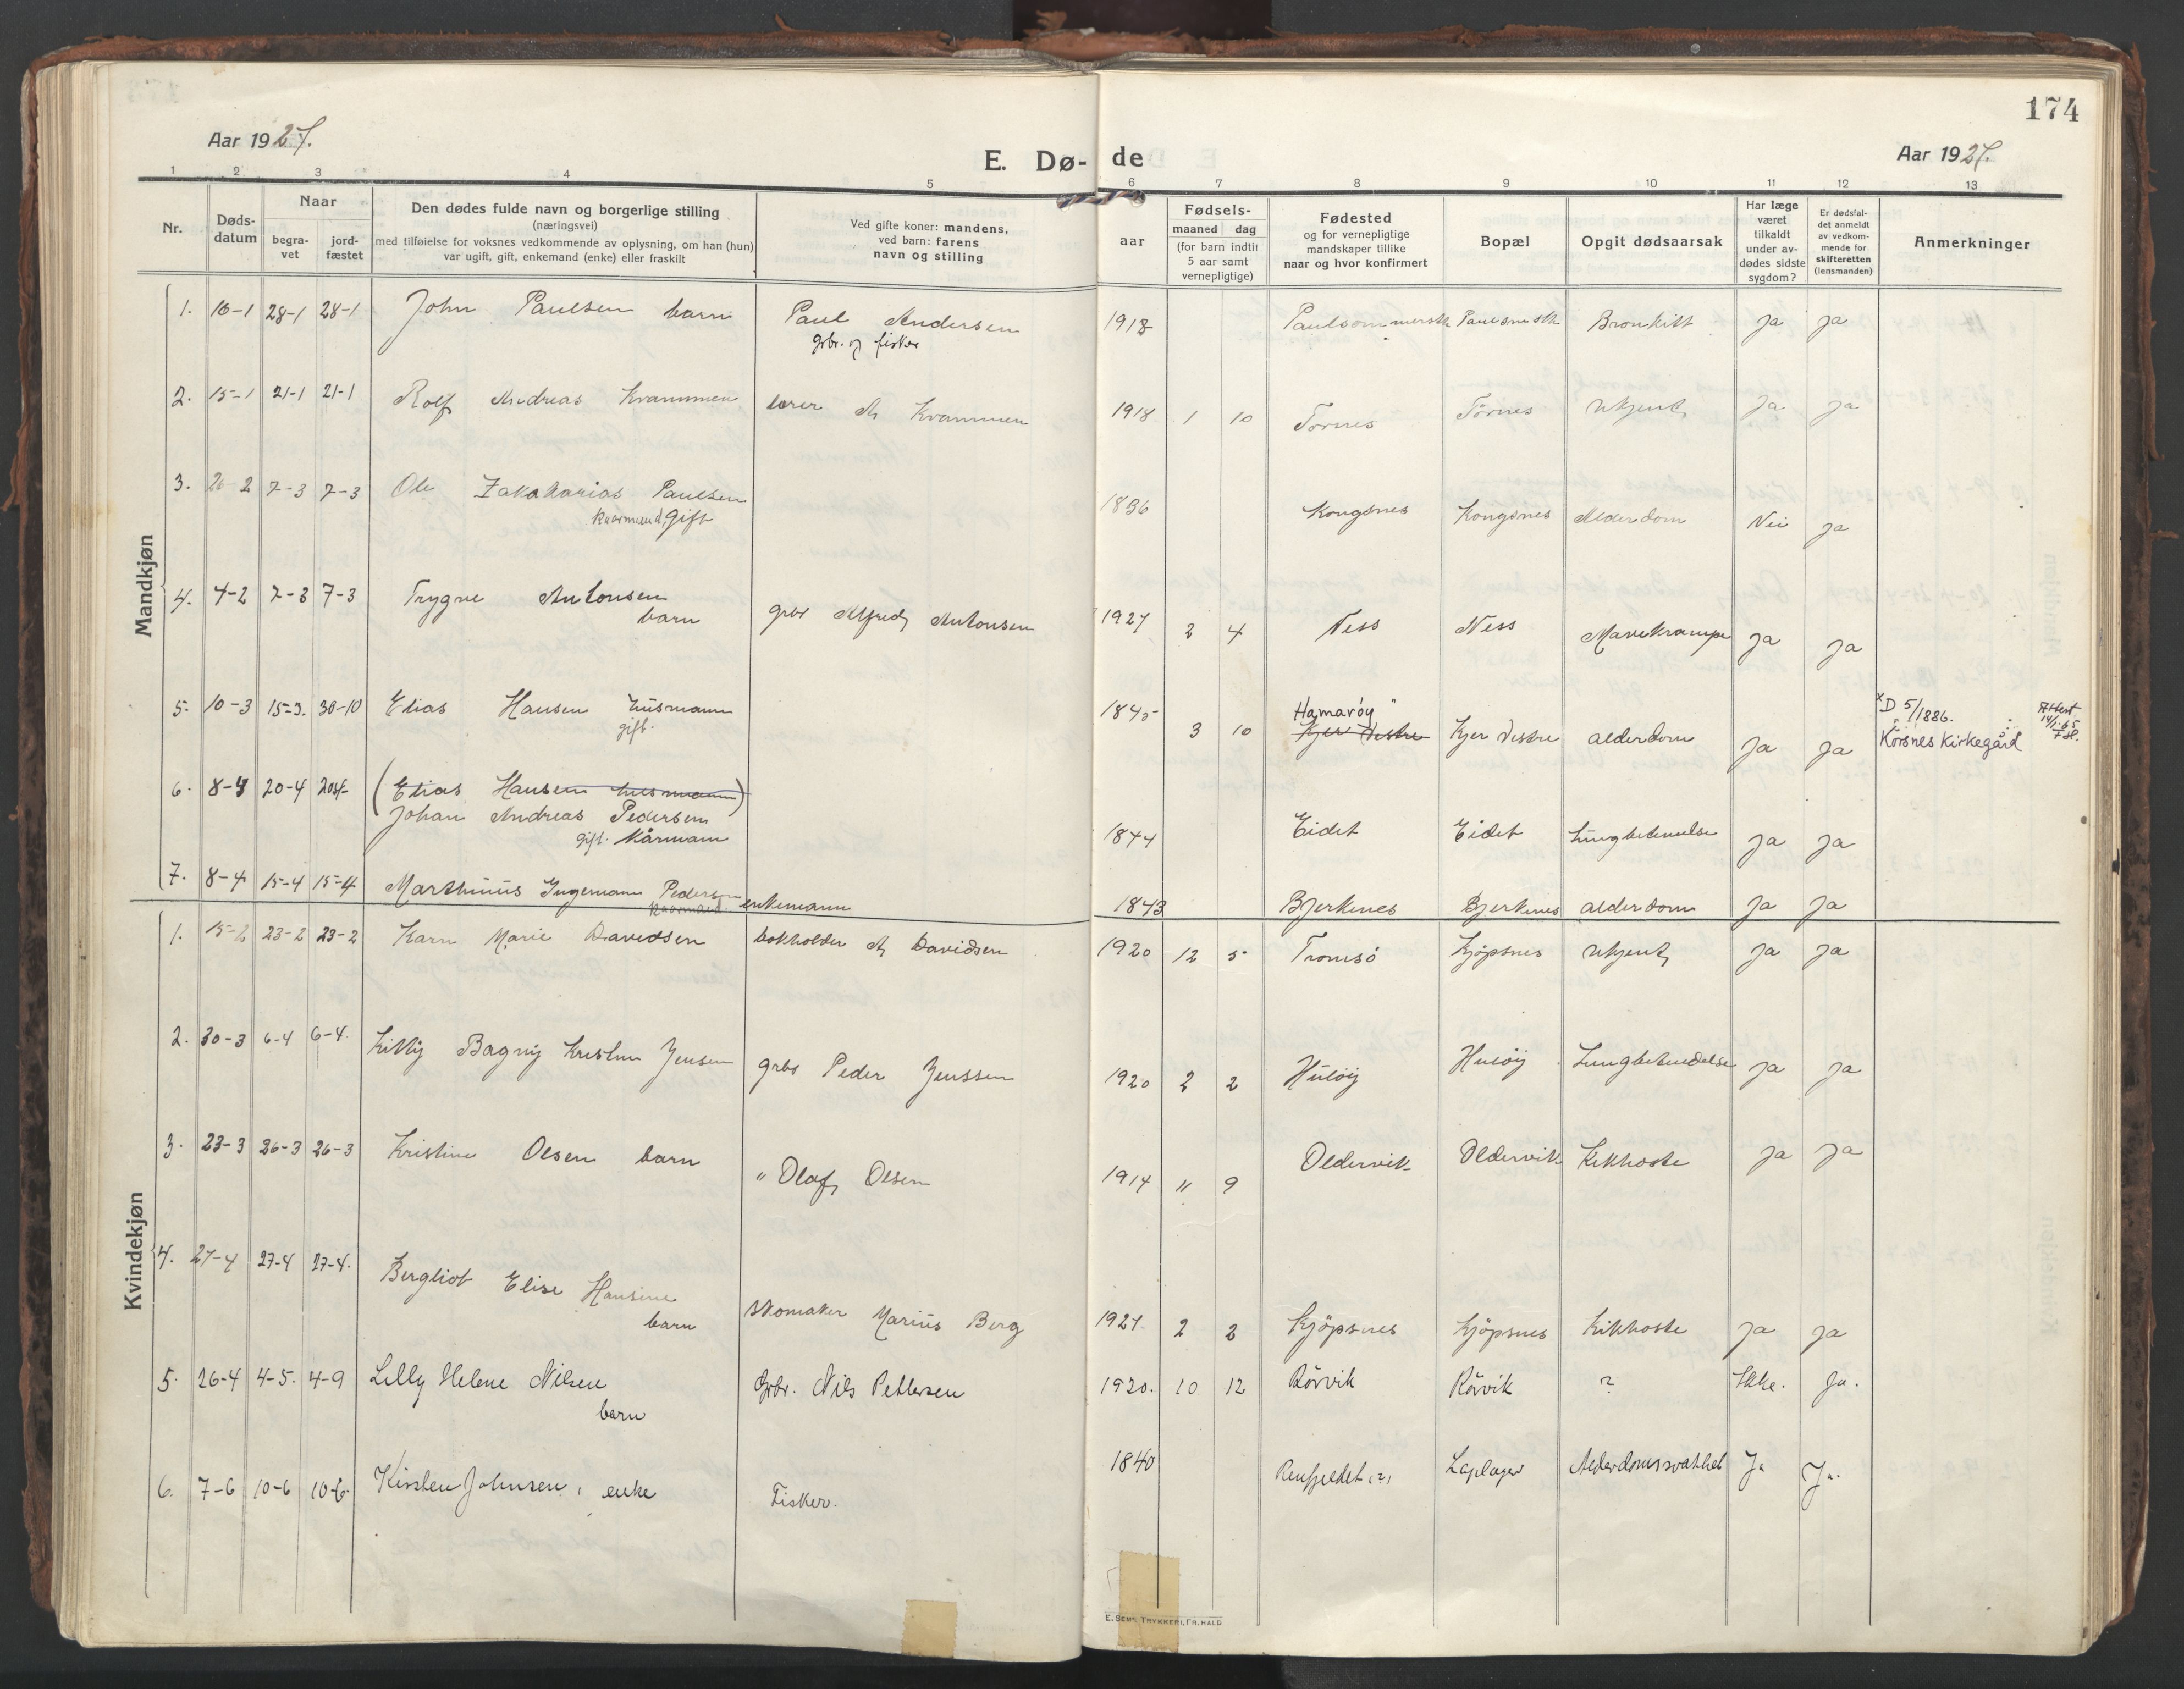 174
Aar 1927.
E. Dø- de
Aar 1927.
1 2 3 4 5 6 7 8 9 10 11 12 13
Nr.
Døds-
datum
Naar
begra-
vet
jord-
fæstet
Den dødes fulde navn og borgerlige stilling
(næringsvei)
med tilføielse for voksnes vedkommende av oplysning, om han (hun)
var ugift, gift, enkemand (enke) eller fraskilt
Ved gifte koner: mandens,
ved barn: farens
navn og stilling
aar
Fødsels-
maaned dag
(for barn indtil
5 aar samt
vernepligtige)
Fødested
og for vernepligtige
mandskaper tillike
naar og hvor konfirmert
Bopæl
Opgit dødsaarsak
Har læge
været
tilkaldt
under av-
dødes sidste
sygdom?
Er dødsfal-
det anmeldt
av vedkom-
mende for
skifteretten
(lensmanden)
Anmerkninger
Mandkjøn
1. 10-1 28-1 28-1 John Paulsen barn Paul Andersen 1918 Bronkitt Ja Ja
grbr. og fisker
2. 15-1 21-1 21-1 Rolf Andreas Kvammen lærer A Kvammen 1918 1 10 Tornes Tornes Ukjent Ja Ja
3. 26-2 7-3 7-3 Ole Zakarias Paulsen 1836 Kongsnes Kongsnes Alderdom Nei Ja
kaarmand, gift
4. 4-2 7-3 7-3 Trygve Antonsen grbr Alfred Antonsen 1927 2 4 Ness Ness Mavekrampe Ja Ja
barn
5. 10-3 15-3. 30-10 Elias Hansen husmann 1845 3 10 Hamarøy Kjer Vestre Kjer Vestre alderdom Ja Ja
gift.
D 5/1886.
Korsnes Kirkegård
Attest
14/1-65
6. 8-4 20-4 20-4 (Elias Hansen husmann)
Johan Andreas Pedersen 1844 Eidet Eidet Lungbetennelse Ja Ja
gift. Kårmann
7. 8-4 15-4 15-4 Marthinus Ingemann Pedersen enkemann 1843 Bjerkenes Bjerkenes alderdom Ja Ja
kaarmand.
Kvindekjøn
1. 15-2 23-2 23-2 Karn Marie Davidsen bokholder A Davidsen 1920 12 5 Tromsö Kjöpsnes Ukjent Ja Ja
2. 30-3 6-4 6-4. Kitty Bagny Kristine Jensen grbr Peder Jenssen 1920 2 2 Husöy Husöy Lungbetendelse Ja Ja
3. 23-3 26-3 26-3 Kristine Olsen barn " Olaf Olsen 1914 11 9 Oldervik Oldervik Kikhoste Ja Ja
4. 27-4 27-4 27-4. Bergliot Elise Hansine skomaker Marius Berg 1927. 2 2 Kjöpsnes Kjöpsnes Kikhoste Ja Ja
barn
5. 26-4 4-5. 4-9 Lilly Helene Nilsen Grbr. Nils Pettersen 1920. 10 12 Rörvik Rörvik ? Ikke. Ja.
barn
6. 7-6 10-6 10-6. Kirsten Johnsen, enke Fisker. 1840 Renfjeldet (?) Laplager Alderdomssvakhet Ja Ja.
E. SEM'S TRYKKERI, FR.HALD